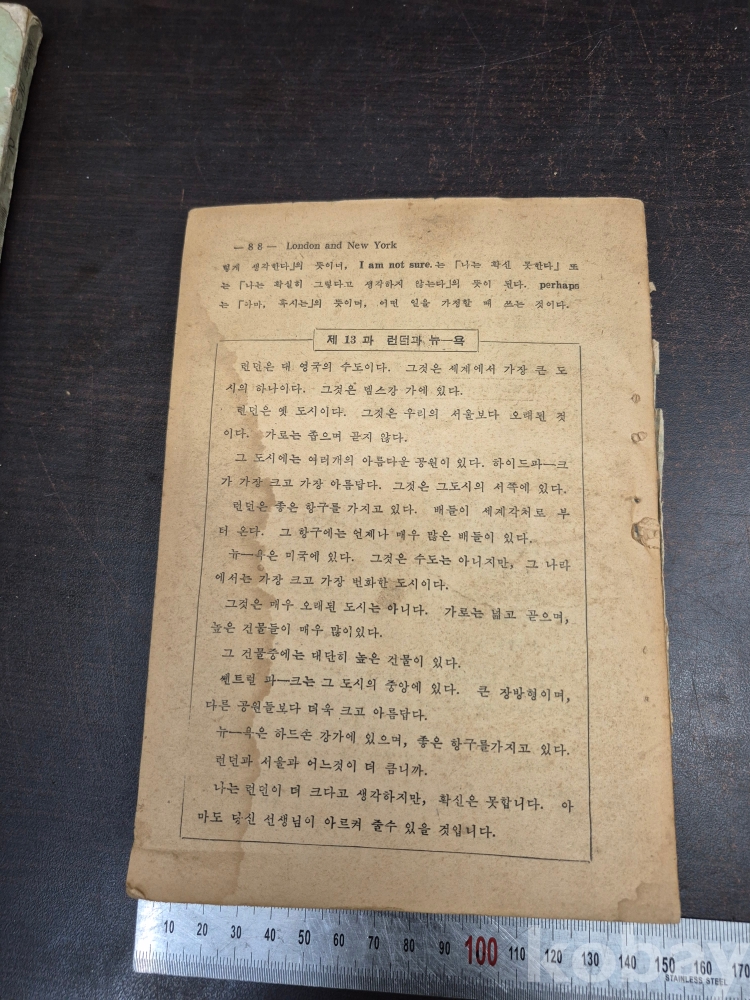 — 8 8 — London and New York
렇게 생각한다」의 뜻이며, I am not sure. 는 「나는 확신 못한다」 또
는 「나는 확실히 그렇다고 생각하지 않는다」의 뜻이 된다. perhaps
는 「아마, 혹시는」의 뜻이며, 어떤 일을 가정할 때 쓰는 것이다.
제 13 과 런던과 뉴—욕
런던은 대 영국의 수도이다. 그것은 세계에서 가장 큰 도
시의 하나이다. 그것은 템스강 가에 있다.
런던은 옛 도시이다. 그것은 우리의 서울보다 오래된 것
이다. 가로는 좁으며 곧지 않다.
그 도시에는 여러개의 아름다운 공원이 있다. 하이드파—크
가 가장 크고 가장 아름답다. 그것은 그도시의 서쪽에 있다.
런던은 좋은 항구를 가지고 있다. 배들이 세계각처로 부
터 온다. 그 항구에는 언제나 매우 많은 배들이 있다.
뉴—욕은 미국에 있다. 그것은 수도는 아니지만, 그 나라
에서는 가장 크고 가장 번화한 도시이다.
그것은 매우 오래된 도시는 아니다. 가로는 넓고 곧으며,
높은 건물들이 매우 많이있다.
그 건물중에는 대단히 높은 건물이 있다.
쎈트럴 파—크는 그 도시의 중앙에 있다. 큰 장방형이며,
다른 공원들보다 더욱 크고 아름답다.
뉴—욕은 하드손 강가에 있으며, 좋은 항구를가지고 있다.
런던과 서울과 어느것이 더 큽니까.
나는 런던이 더 크다고 생각하지만, 확신은 못합니다. 아
마도 당신 선생님이 아르켜 줄수 있을 것입니다.
10 20 30 40 50 60 70 80 90 100 110 120 130 140 150 160 170
STAINLESS STEEL
kobay